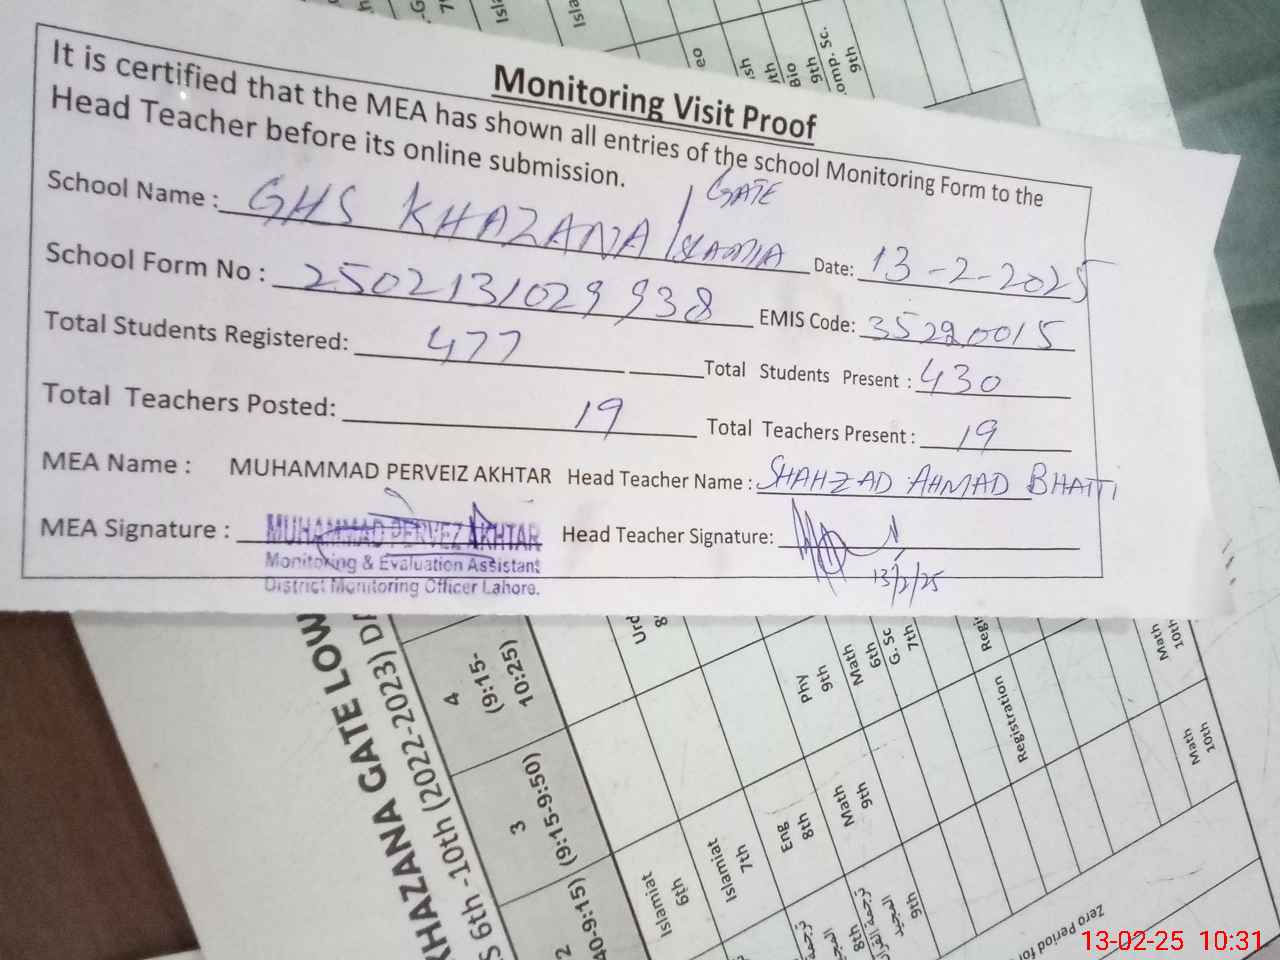 Monitoring Visit Proof
It is certified that the MEA has shown all entries of the school Monitoring Form to the
Head Teacher before its online submission.
School Name : GHS KHAZANA GATE ISLAMIA Date: 13-2-2025
School Form No : 2502131029938 EMIS Code: 35220015
Total Students Registered: 477 Total Students Present : 430
Total Teachers Posted: 19 Total Teachers Present : 19
MEA Name : MUHAMMAD PERVEIZ AKHTAR Head Teacher Name : SHAHZAD AHMAD BHATTI
MEA Signature : MUHAMMAD PERVEZ AKHTAR Head Teacher Signature:
Monitoking & Evaluation Assistant
District Monitoring Officer Lahore.
13/2/25
KHAZANA GATE LOW
S 6th - 10th (2022-2023) DA
4
(9:15-
10:25)
3
(9:15-9:50)
2
40-9:15)
Urd
8
Islamiat
6th
Islamiat
7th
Eng
8th
Math
9th
Phy
9th
Math
6th
G.Sc
7th
Regi
Registration
Math
10th
Math
10th
8th
9th
Zero Period for
omp. Sc.
9th
Bio
9th
13-02-25 10:31